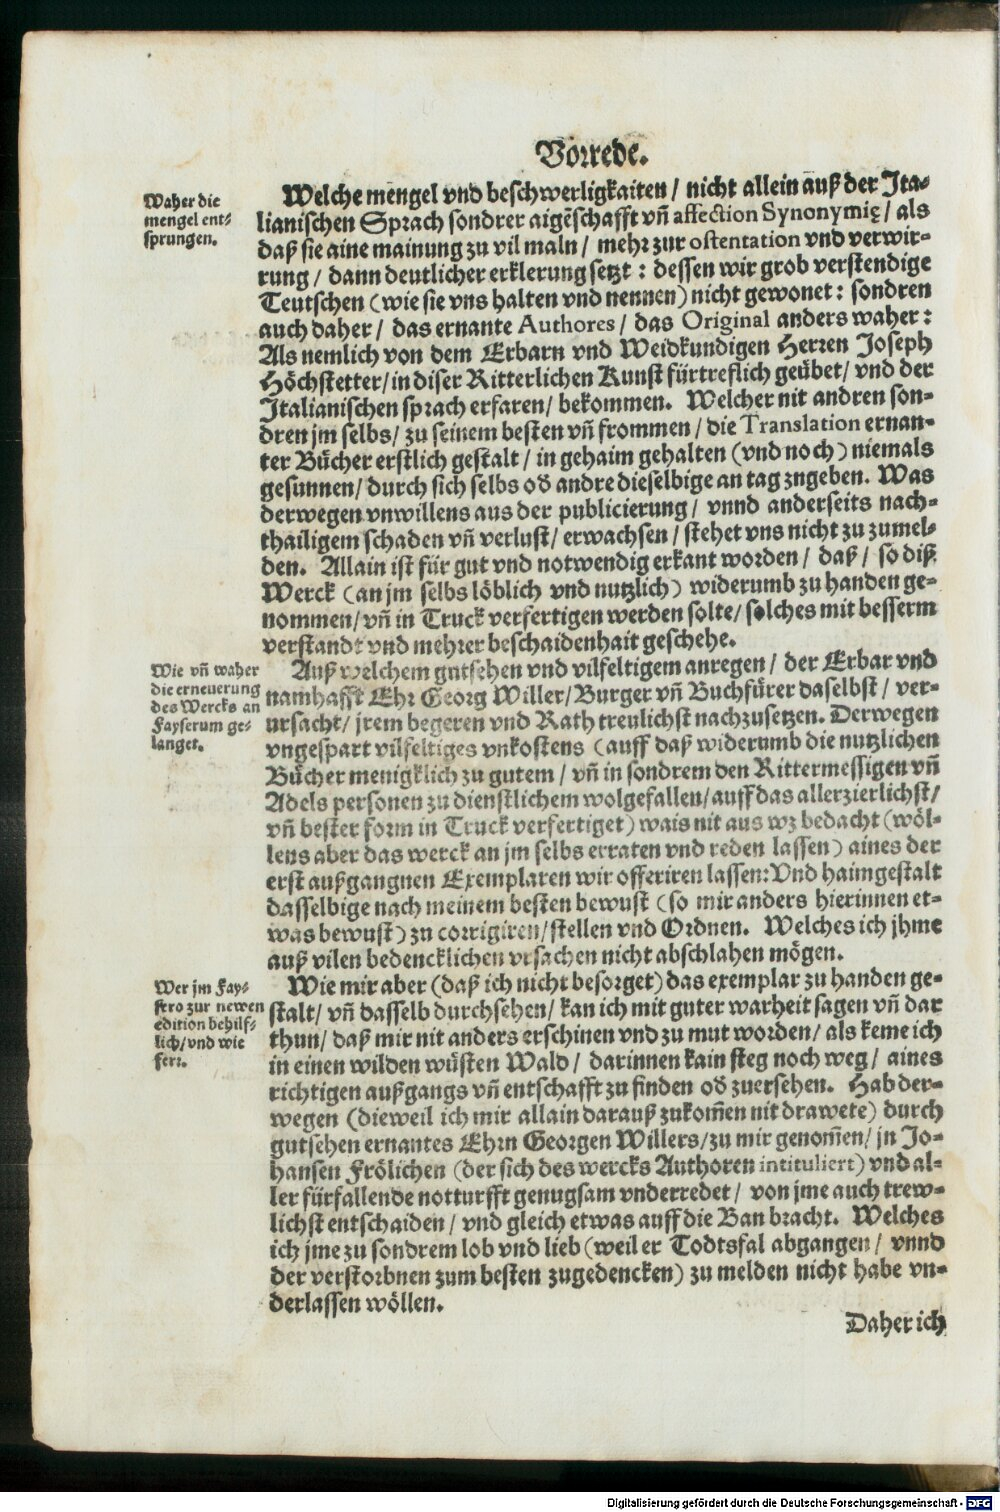 Vorrede.
Waher die
mengel ent-
sprungen.
Welche mengel vnd beschwerligkaiten / nicht allein auß der Ita-
lianischen Sprach sondrer aigẽschafft vñ affection Synonymię / als
daß sie aine mainung zu vil maln / mehr zur ostentation vnd verwir-
rung / dann deutlicher erklerung setzt : dessen wir grob verstendige
Teutschen (wie sie vns halten vnd nennen) nicht gewonet : sondren
auch daher / das ernante Authores / das Original anders waher :
Als nemlich von dem Erbarn vnd Weidkundigen Herren Joseph
Höchstetter / in diser Ritterlichen Kunst fürtreflich geübet / vnd der
Italianischen sprach erfaren / bekommen. Welcher nit andren son-
dren jm selbs / zu seinem besten vñ frommen / die Translation ernan-
ter Bücher erstlich gestalt / in gehaim gehalten (vnd noch) niemals
gesunnen / durch sich selbs od andre dieselbige an tag zugeben. Was
derwegen vnwillens aus der publicierung / vnnd anderseits nach-
thailigem schaden vñ verlust / erwachsen / stehet vns nicht zu zumel-
den. Allain ist für gut vnd notwendig erkant worden / daß / so diß
Werck (an jm selbs löblich vnd nutzlich) widerumb zu handen ge-
nommen / vñ in Truck verfertigen werden solte / solches mit besserm
verstandt vnd mehrer beschaidenhait geschehe.
Wie vñ waher
die erneuerung
des Wercks an
Fayserum ge-
langet.
Auß welchem gutsehen vnd vilfeltigem anregen / der Erbar vnd
namhafft Ehr Georg Willer / Burger vñ Buchfürer daselbst / ver-
ursacht / jrem begeren vnd Rath treulichst nachzusetzen. Derwegen
vngespart vilfeltiges vnkostens (auff daß widerumb die nutzlichen
Bücher menigklich zu gutem / vñ in sondrem den Rittermessigen vñ
Adels personen zu dienstlichem wolgefallen / auff das allerzierlichst /
vñ bester form in Truck verfertiget) wais nit aus wz bedacht (wöl-
lens aber das werck an jm selbs erraten vnd reden lassen) aines der
erst außgangnen Exemplaren wir offeriren lassen: Vnd haimgestalt
dasselbige nach meinem besten bewust (so mir anders hierinnen et-
was bewust) zu corrigiren / stellen vnd Ordnen. Welches ich jhme
auß vilen bedencklichen vrsachen nicht abschlahen mögen.
Wer jm Fay-
stro zur newen
edition behilf-
lich / vnd wie
ferr.
Wie mir aber (daß ich nicht besorget) das exemplar zu handen ge-
stalt / vñ dasselb durchsehen / kan ich mit guter warheit sagen vñ dar
thun / daß mir nit anders erschinen vnd zu mut worden / als keme ich
in einen wilden wüsten Wald / darinnen kain steg noch weg / aines
richtigen außgangs vñ entschafft zu finden od zuersehen. Hab der-
wegen (dieweil ich mir allain darauß zukom̃en nit drawete) durch
gutsehen ernantes Ehrn Georgen Willers / zu mir genom̃en / jn Jo-
hansen Frölichen (der sich des wercks Authoren intituliert) vnd al-
ler fürfallende notturfft genugsam vnderredet / von jme auch trew-
lichst entschaiden / vnd gleich etwas auff die Ban bracht. Welches
ich jme zu sondrem lob vnd lieb (weil er Todtsfal abgangen / vnnd
der verstorbnen zum besten zugedencken) zu melden nicht habe vn-
derlassen wöllen.
Daher ich
Digitalisierung gefördert durch die Deutsche Forschungsgemeinschaft - DFG